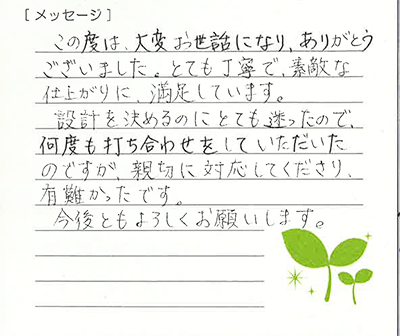 [メッセージ]
この度は、大変お世話になり、ありがとう
ございました。とても丁寧で、素敵な
仕上がりに、満足しています。
設計を決めるのにとても迷ったので、
何度も打ち合わせをしていただいた
のですが、親切に対応してくださり、
有難かったです。
今後ともよろしくお願いします。